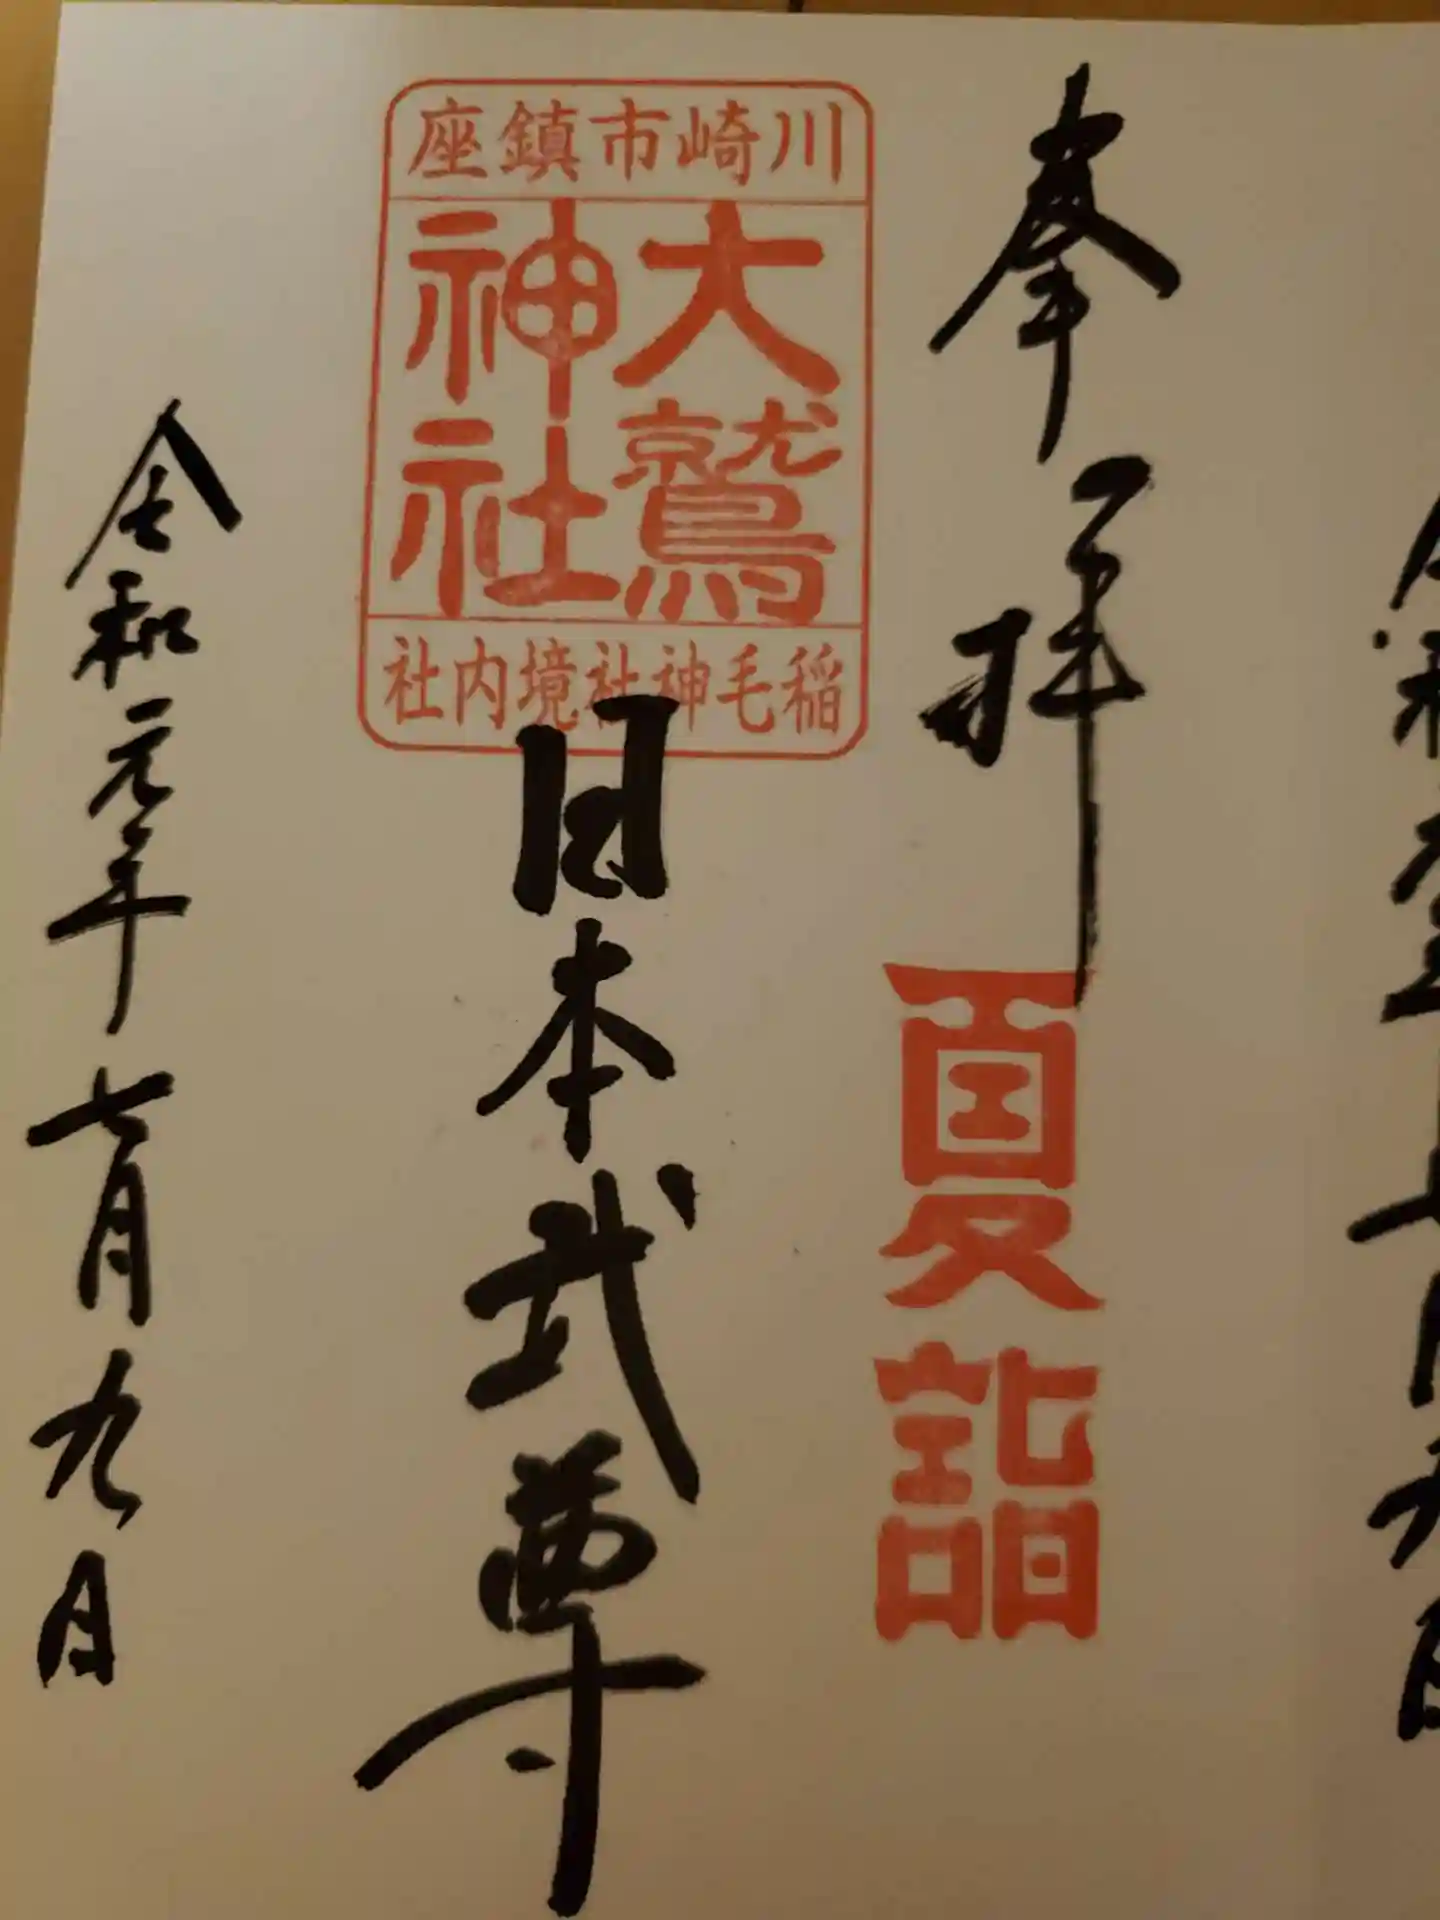 奉拝
夏詣
川崎市鎮座
大鷲
神社
稲毛神社境内社
日本武尊
令和元年七月九日